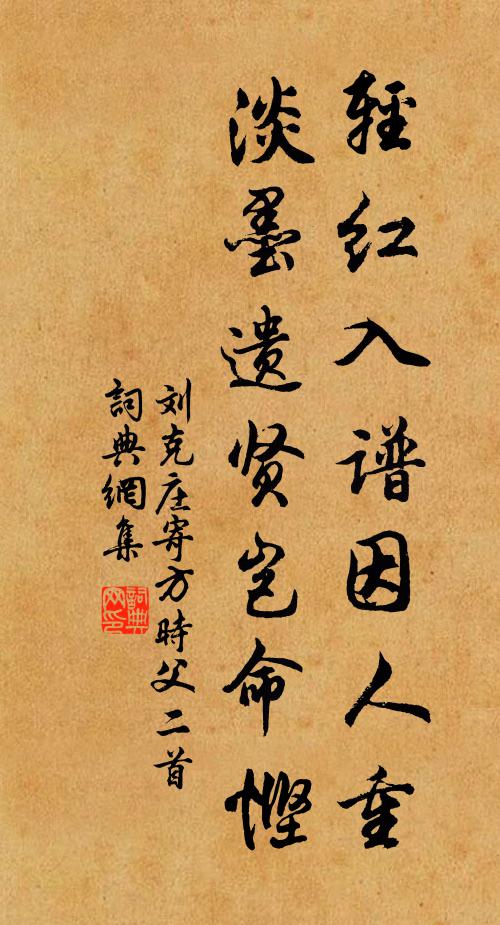 輕红入谱因人重
淡墨遗贤岂命慳
刘克庄寄方時父二首
詞典網集
詞典網印